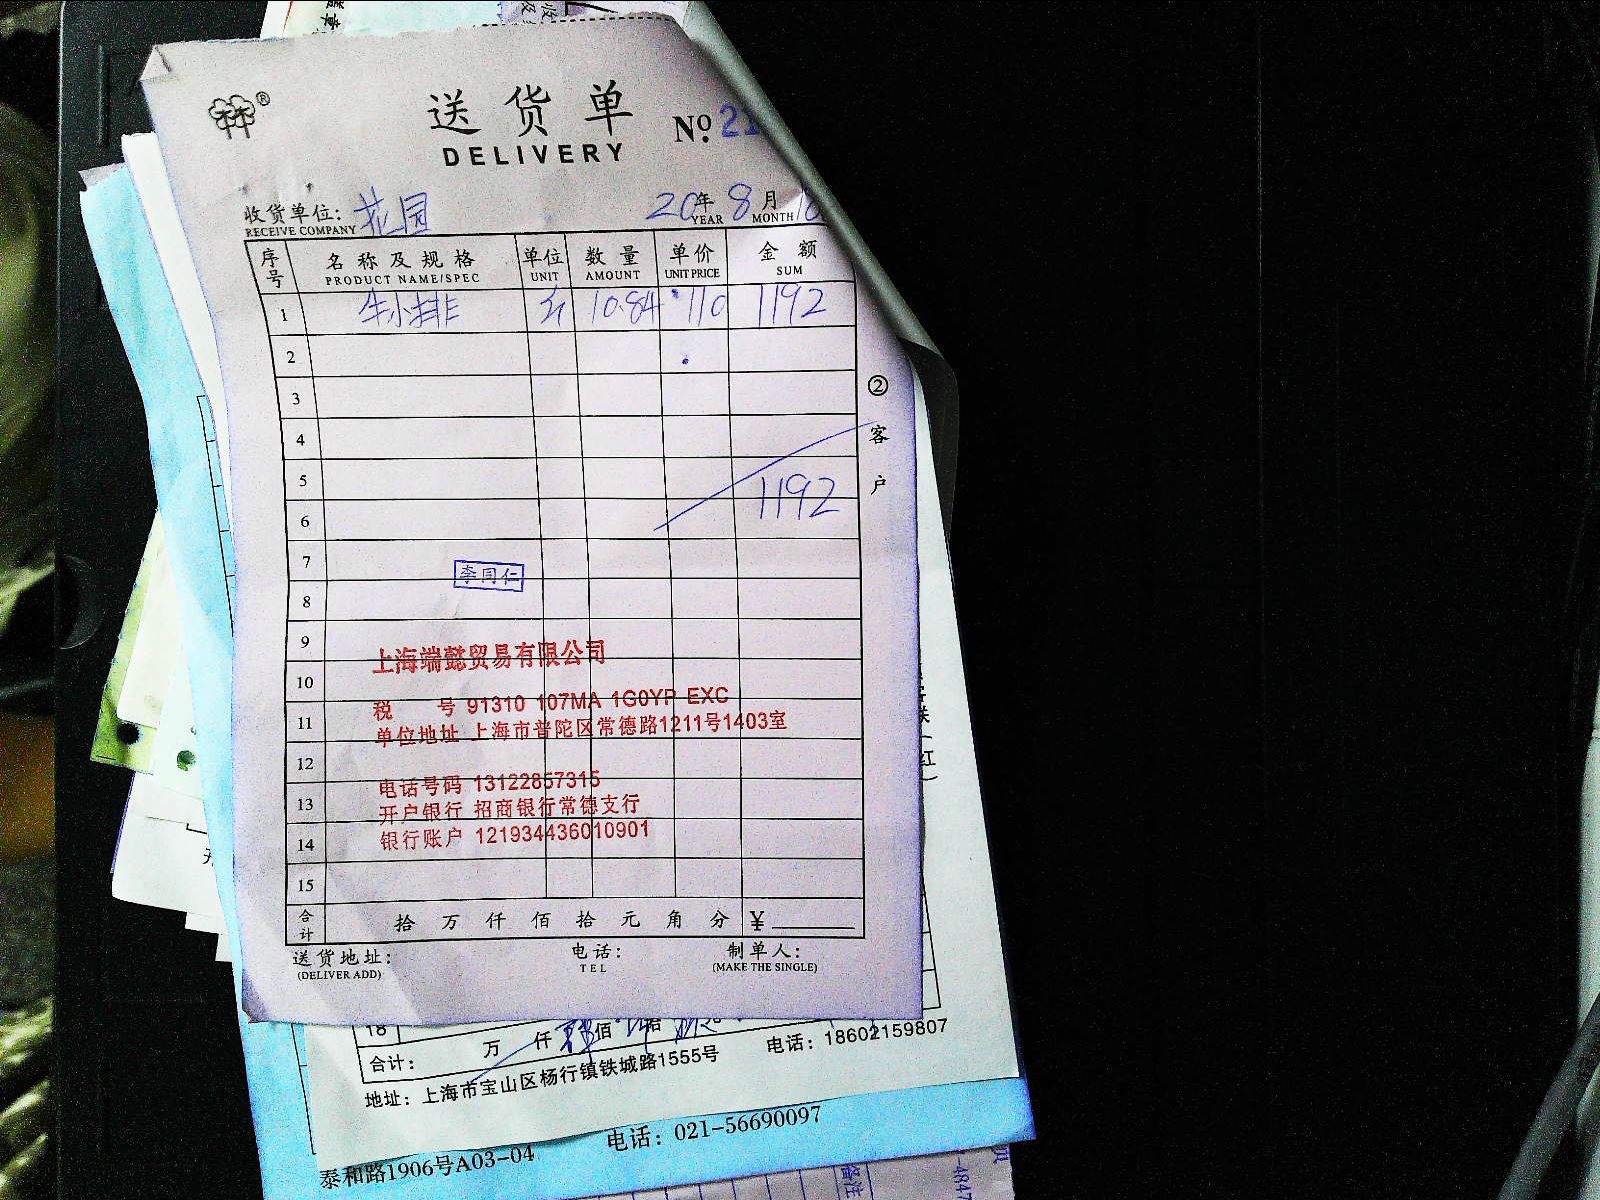 送货单
DELIVERY
№ 21
收货单位: 花园
RECEIVE COMPANY
20年 8月 10
YEAR MONTH
序号 名称及规格 单位 数量 单价 金额
PRODUCT NAME/SPEC UNIT AMOUNT UNIT PRICE SUM
1 牛小排 斤 10.84 110 1192
2
3
4
5
1192
6
7
李同仁
8
9
上海端懿贸易有限公司
10
税 号 91310 107MA 1G0YP EXC
11
单位地址 上海市普陀区常德路1211号1403室
12
电话号码 13122857315
13
开户银行 招商银行常德支行
14
银行账户 121934436010901
15
合计 拾 万 仟 佰 拾 元 角 分 ¥
送货地址: 电话: 制单人:
(DELIVER ADD) TEL (MAKE THE SINGLE)
② 客户
18
合计: 万 仟 佰 拾
地址: 上海市宝山区杨行镇铁城路1555号 电话: 18602159807
泰和路1906号A03-04 电话: 021-56690097
备注
4847